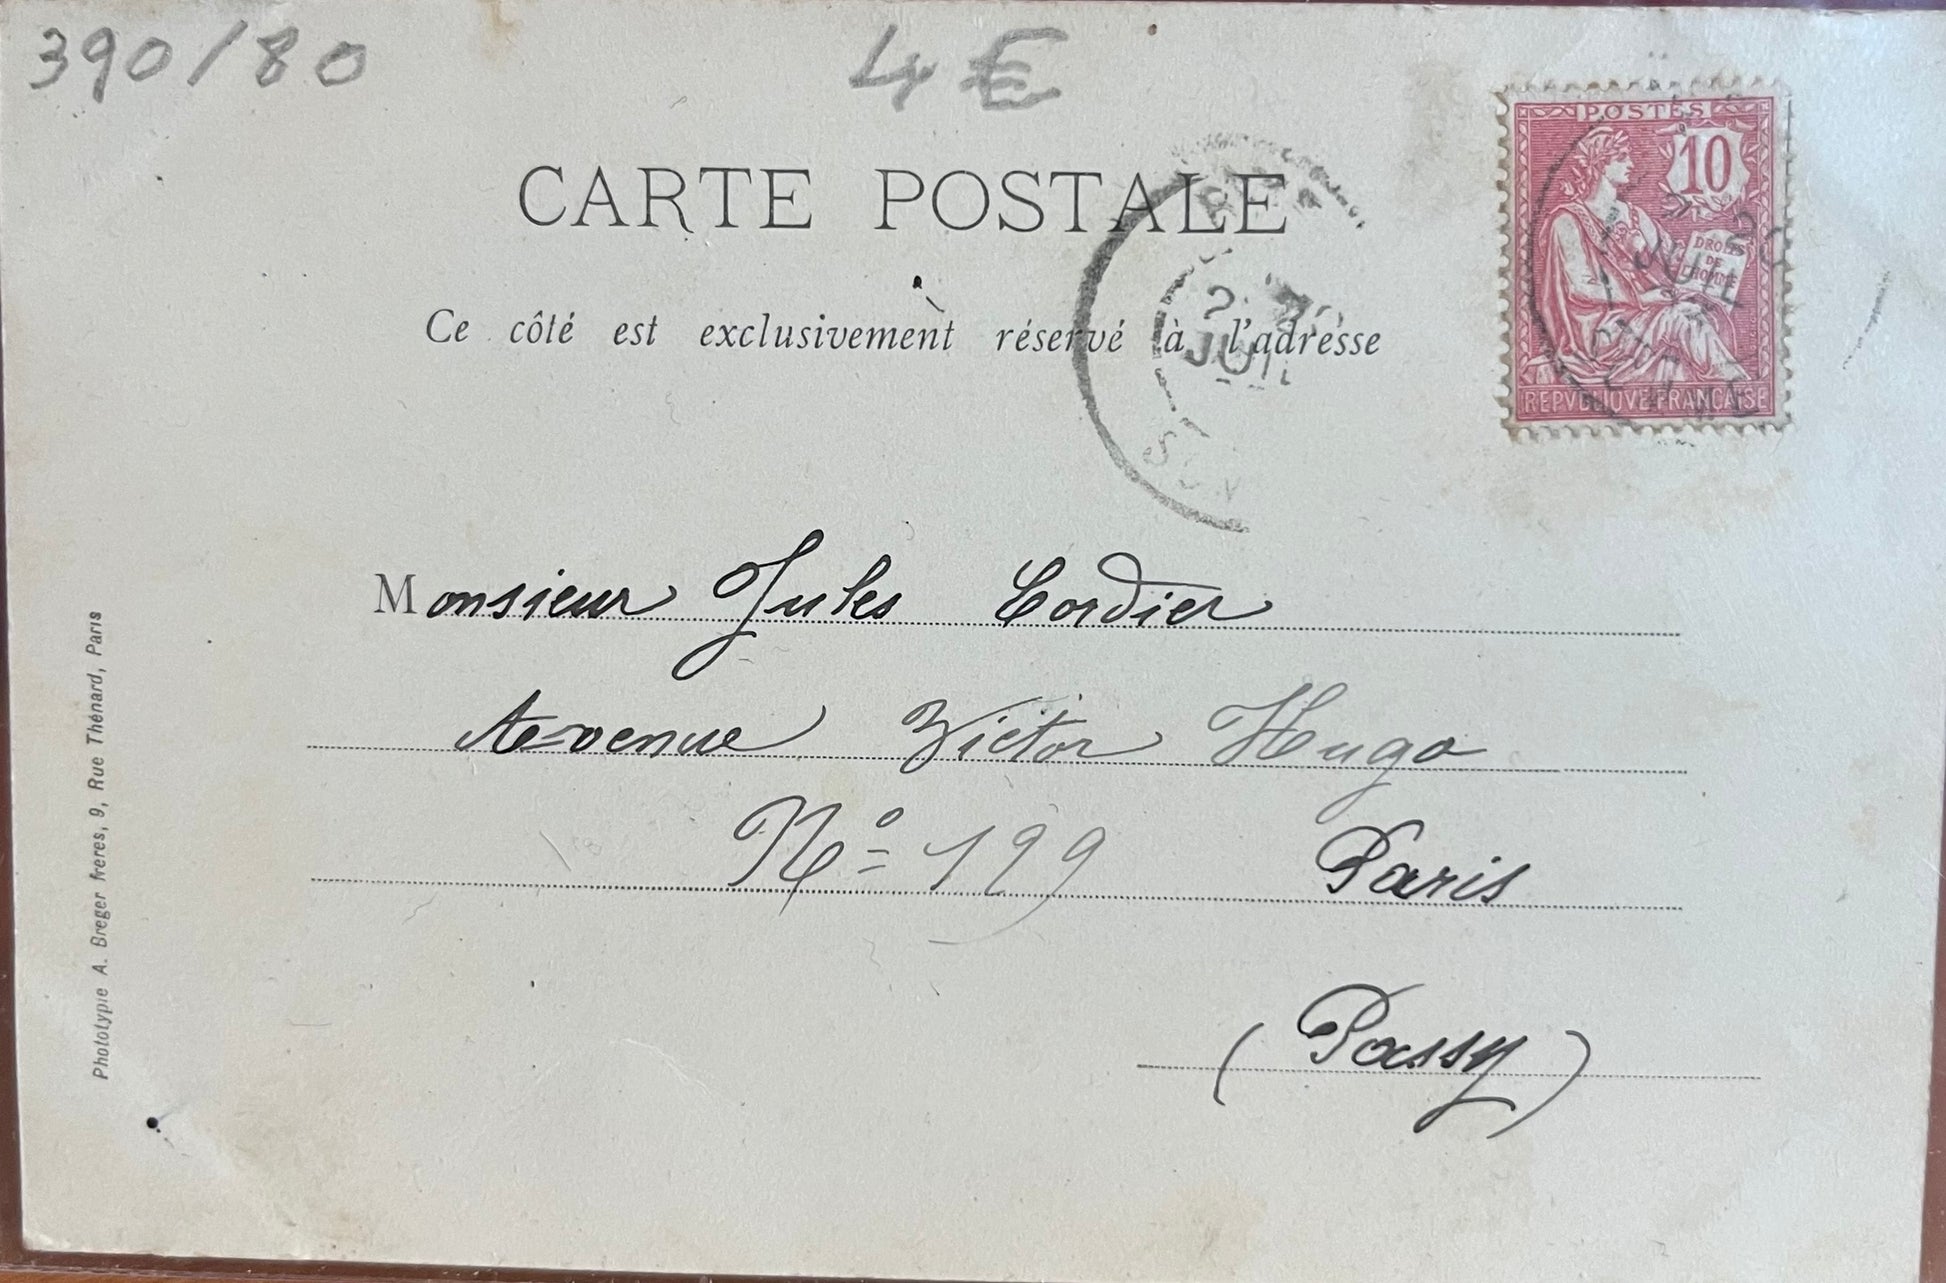 390/80
4€
POSTES
10
DROITS
DE
L'HOMME
JUIL
REPVBLIQVE FRANÇAISE
CARTE POSTALE
Ce côté est exclusivement réservé à l'adresse
JUIL
Monsieur Jules Cordier
Avenue Victor Hugo
Nº 199 Paris
(Passy)
Phototypie A. Breger frères, 9, Rue Thénard, Paris